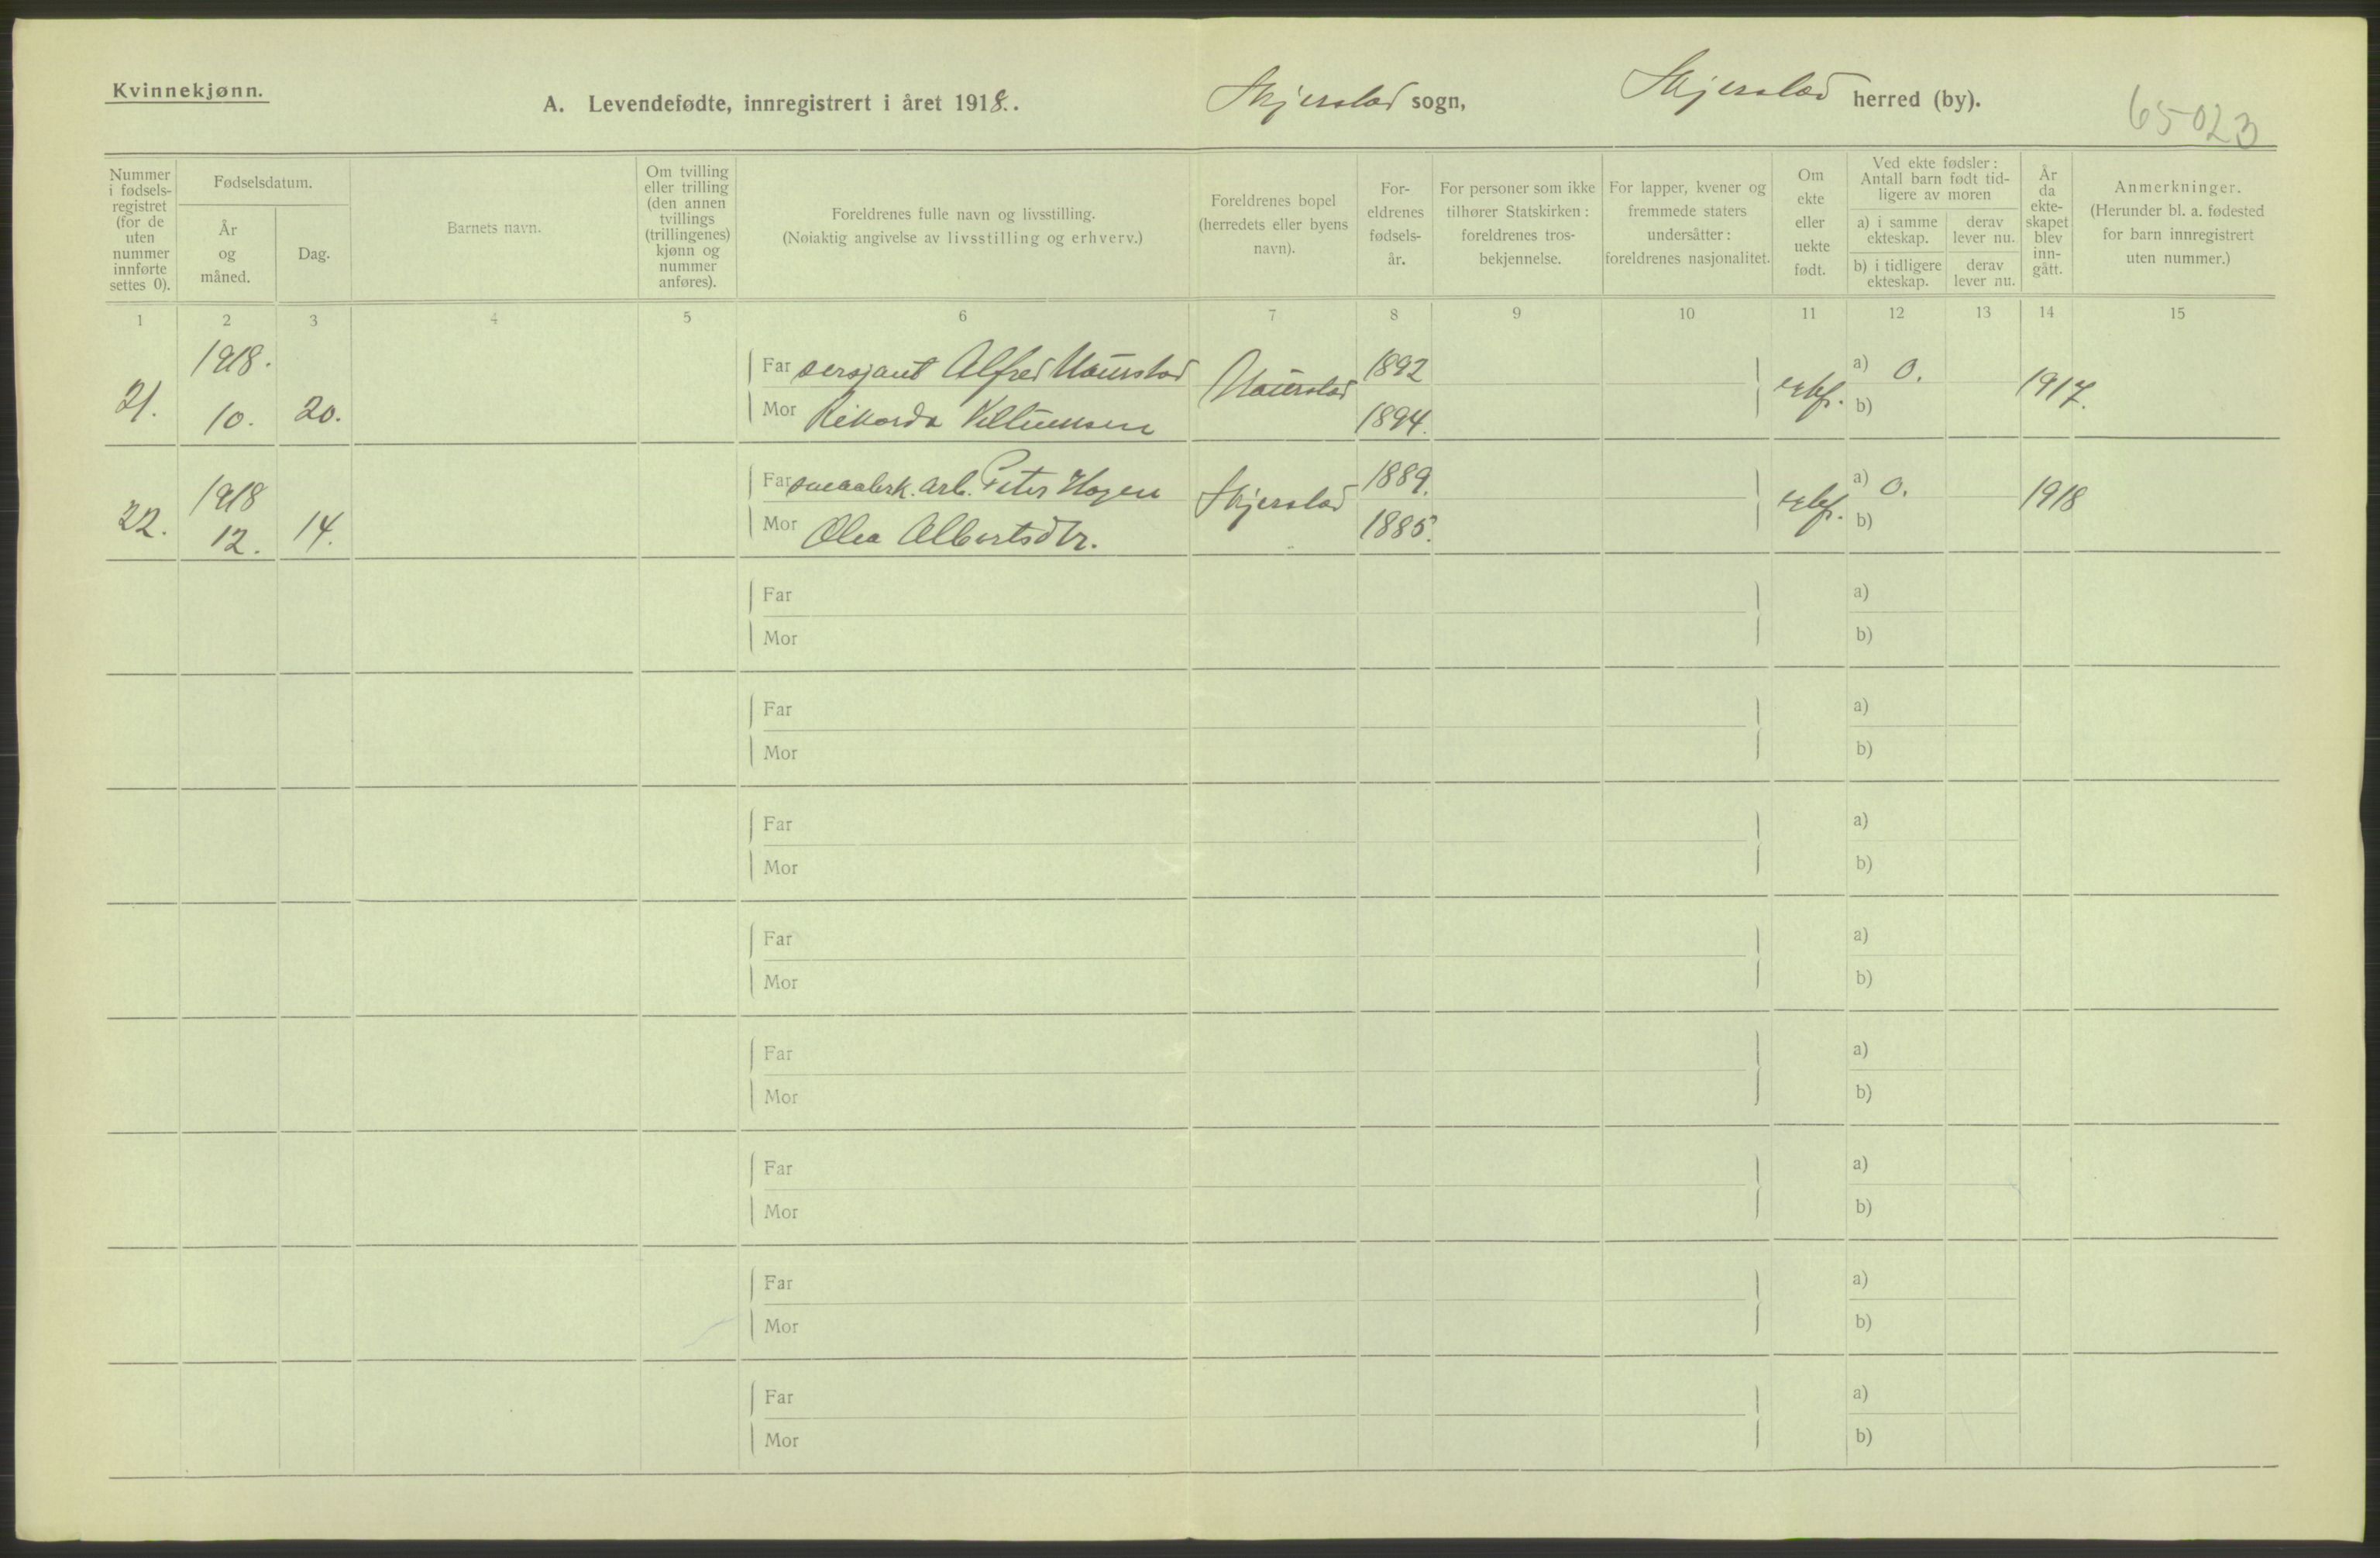 Kvinnekjønn.
A. Levendefødte, innregistrert i året 1918.
Skjerstad sogn,
Skjerstad herred (by).
65023
Nummer i fødsels-registret (for de uten nummer innførte settes 0).
Fødselsdatum.
År og måned.
Dag.
Barnets navn.
Om tvilling eller trilling (den annen tvillings (trillingenes) kjønn og nummer anføres).
Foreldrenes fulle navn og livsstilling.
(Nøiaktig angivelse av livsstilling og erhverv.)
Foreldrenes bopel (herredets eller byens navn).
For-eldrenes fødsels-år.
For personer som ikke tilhører Statskirken: foreldrenes tros-bekjennelse.
For lapper, kvener og fremmede staters undersåtter: foreldrenes nasjonalitet.
Om ekte eller uekte født.
Ved ekte fødsler: Antall barn født tid-ligere av moren
a) i samme ekteskap.
derav lever nu.
b) i tidligere ekteskap.
derav lever nu.
År da ekte-skapet blev inn-gått.
Anmerkninger.
(Herunder bl. a. fødested for barn innregistrert uten nummer.)
1 2 3 4 5 6 7 8 9 10 11 12 13 14 15
21. 1918. 10. 20.
Far sersjant Alfred 1892 a) 0. 1917.
Mor Rikarda 1894. b)
22. 1918 12. 14.
Far Peter Hagen Skjerstad 1889. a) 0. 1918
Mor Olea Albertsdtr. 1885. b)
Far a)
Mor b)
Far a)
Mor b)
Far a)
Mor b)
Far a)
Mor b)
Far a)
Mor b)
Far a)
Mor b)
Far a)
Mor b)
Far a)
Mor b)